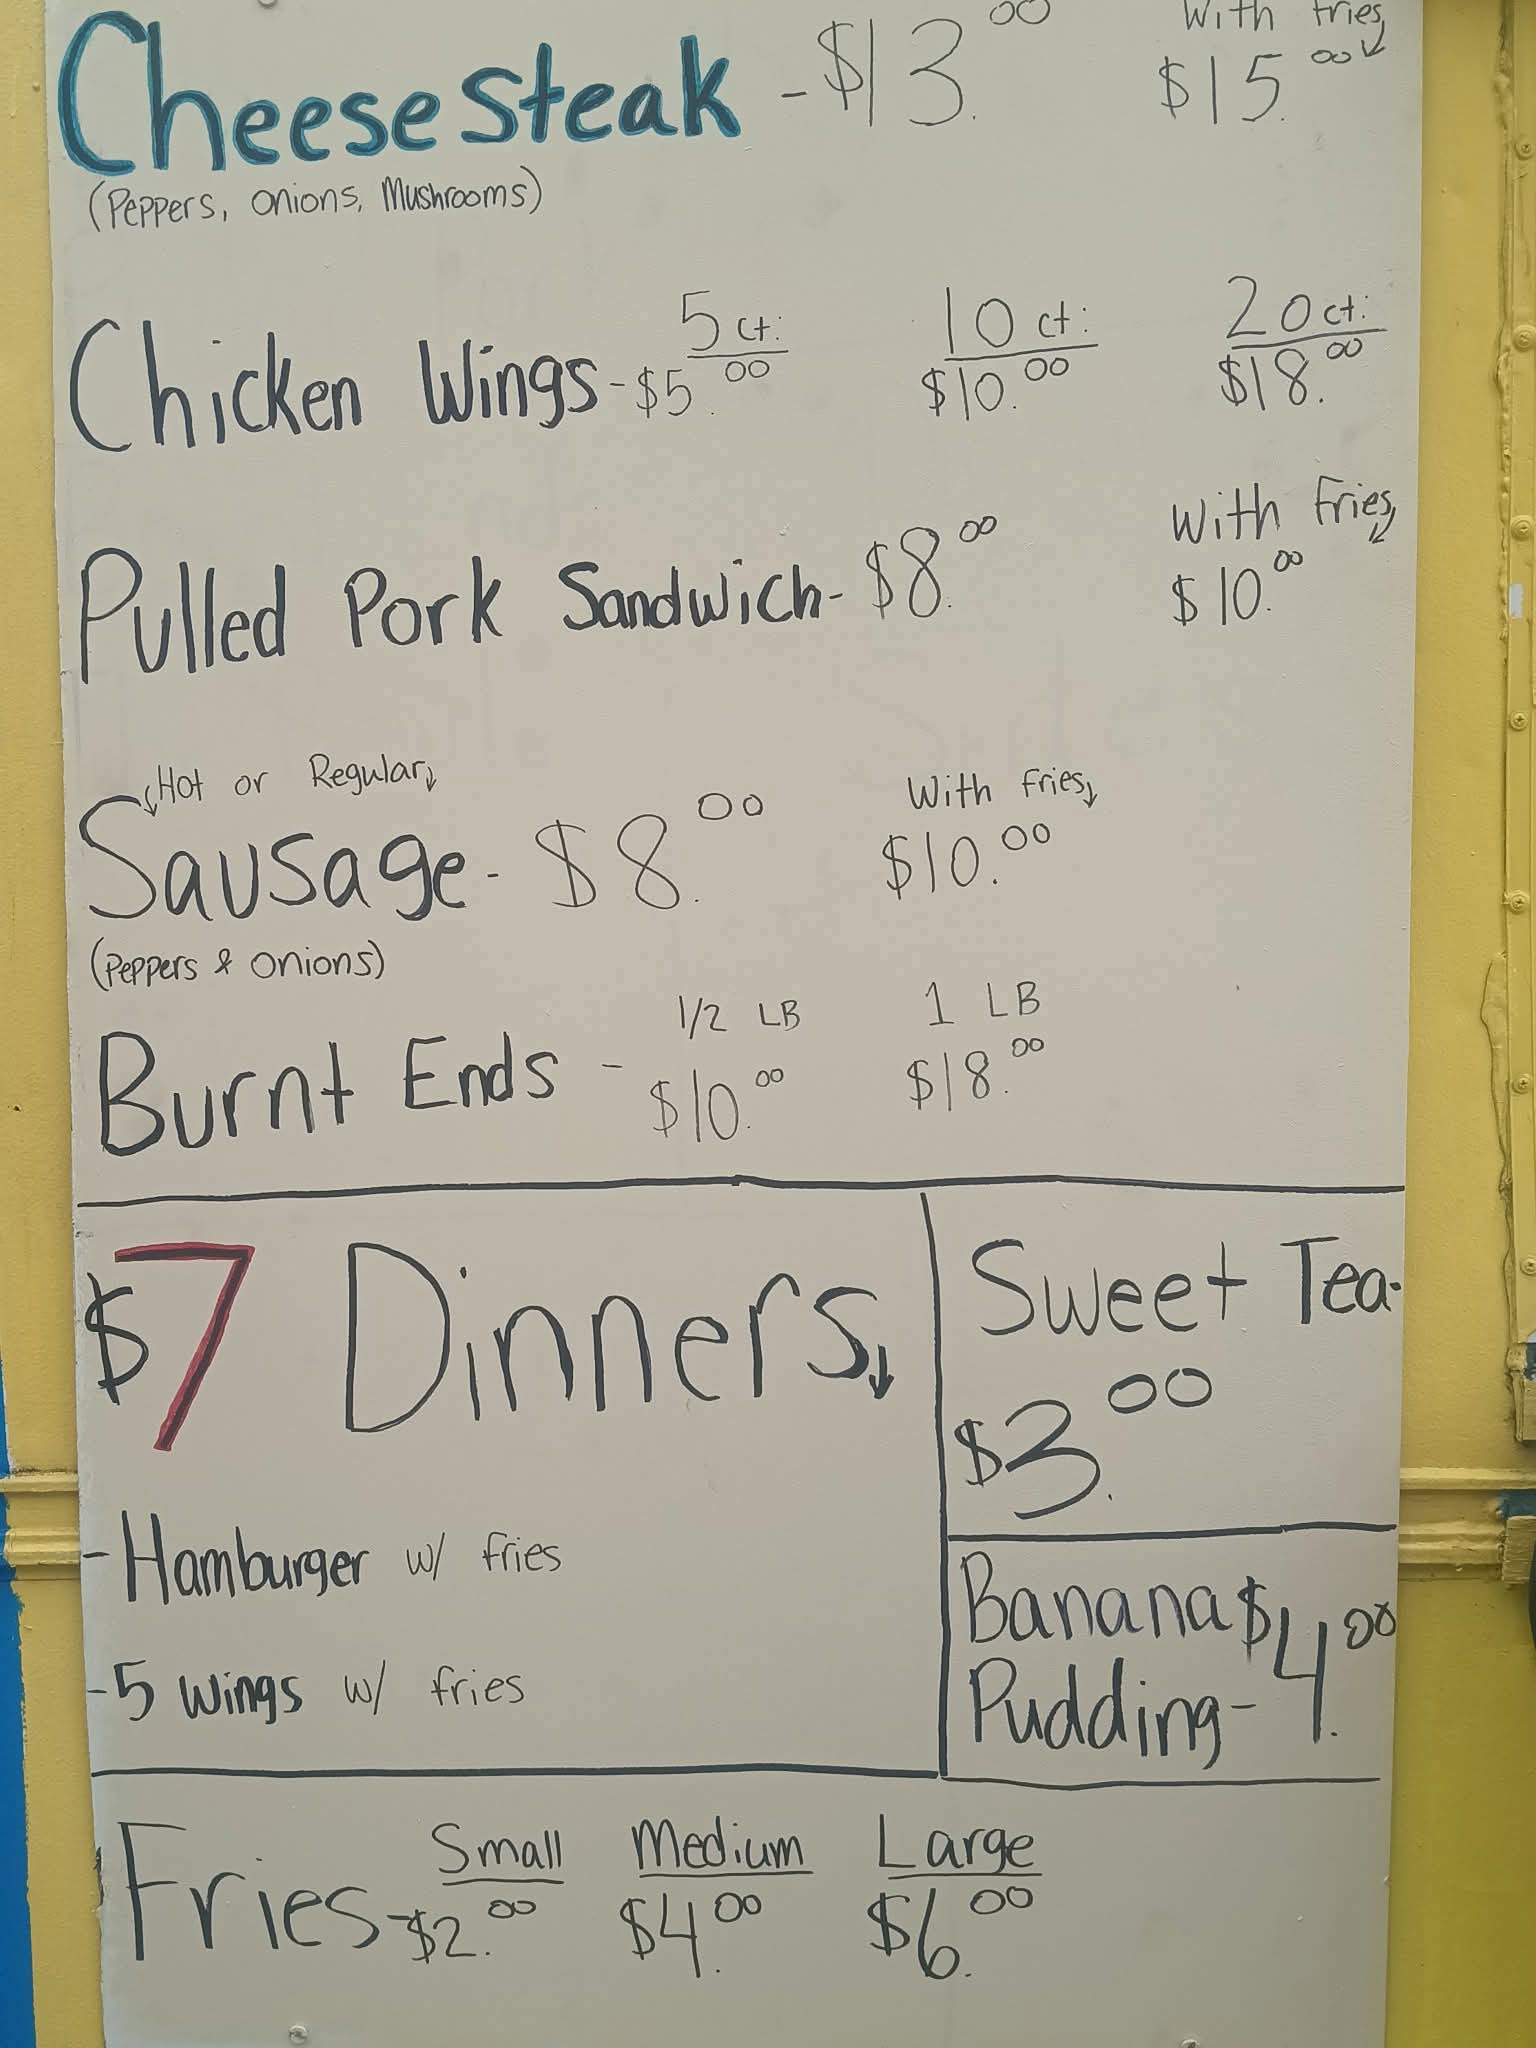 Cheesesteak - $13.00 With fries $15.00
(Peppers, onions, Mushrooms)
5 ct. 10 ct. 20 ct.
Chicken Wings - $5.00 $10.00 $18.00
With Fries
Pulled Pork Sandwich - $8.00 $10.00
Hot or Regular With fries
Sausage - $8.00 $10.00
(Peppers & onions)
1/2 LB 1 LB
Burnt Ends - $10.00 $18.00
$7 Dinners
- Hamburger w/ fries
- 5 Wings w/ fries
Sweet Tea -
$3.00
Banana $4.00
Pudding -
Small Medium Large
Fries - $2.00 $4.00 $6.00